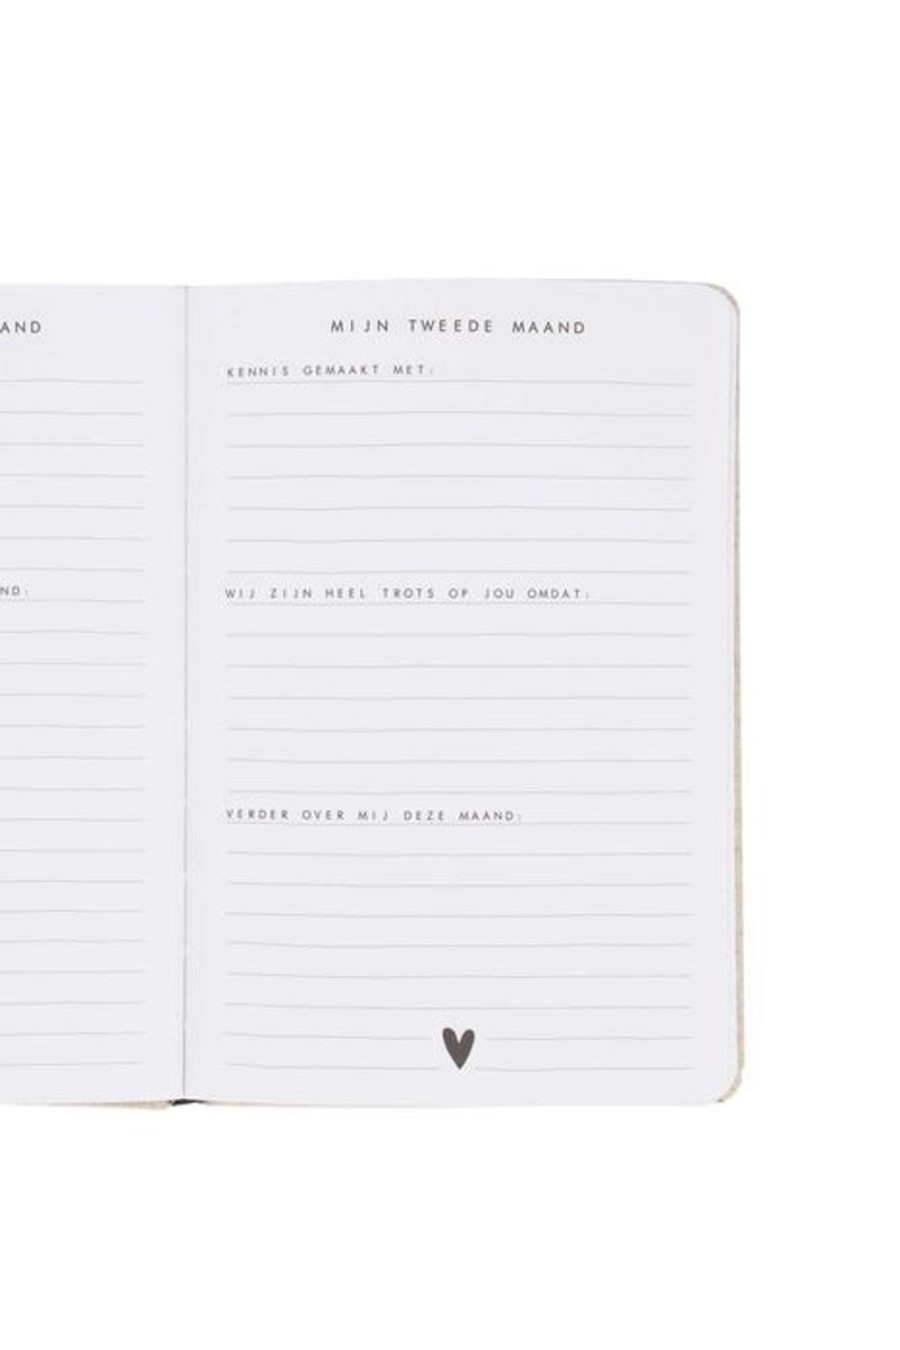 AND
ND:
MIJN TWEEDE MAAND
KENNIS GEMAAKT MET:
WIJ ZIJN HEEL TROTS OP JOU OMDAT:
VERDER OVER MIJ DEZE MAAND: